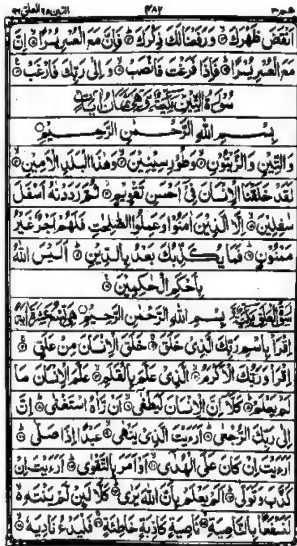 التين ٩٥ العلق ٩٦ ٤٨٢ عم ٣٠
اَنْقَضَ ظَهْرَكَ وَرَفَعْنَا لَكَ ذِكْرَكَ فَاِنَّ مَعَ الْعُسْرِ يُسْرًا اِنَّ
مَعَ الْعُسْرِ يُسْرًا فَاِذَا فَرَغْتَ فَانْصَبْ وَاِلٰى رَبِّكَ فَارْغَبْ
سُوْرَةُ التِّيْنِ مَكِّيَّةٌ وَهِيَ ثَمَانُ اٰيَاتٍ
بِسْمِ اللهِ الرَّحْمٰنِ الرَّحِيْمِ
وَالتِّيْنِ وَالزَّيْتُوْنِ وَطُوْرِ سِيْنِيْنَ وَهٰذَا الْبَلَدِ الْاَمِيْنِ
لَقَدْ خَلَقْنَا الْاِنْسَانَ فِيْ اَحْسَنِ تَقْوِيْمٍ ثُمَّ رَدَدْنٰهُ اَسْفَلَ
سٰفِلِيْنَ اِلَّا الَّذِيْنَ اٰمَنُوْا وَعَمِلُوا الصّٰلِحٰتِ فَلَهُمْ اَجْرٌ غَيْرُ
مَمْنُوْنٍ فَمَا يُكَذِّبُكَ بَعْدُ بِالدِّيْنِ اَلَيْسَ اللهُ
بِاَحْكَمِ الْحٰكِمِيْنَ
سُوْرَةُ الْعَلَقِ مَكِّيَّةٌ بِسْمِ اللهِ الرَّحْمٰنِ الرَّحِيْمِ وَهِيَ تِسْعَ عَشَرَةَ اٰيَةً
اِقْرَأْ بِاسْمِ رَبِّكَ الَّذِيْ خَلَقَ خَلَقَ الْاِنْسَانَ مِنْ عَلَقٍ
اِقْرَأْ وَرَبُّكَ الْاَكْرَمُ الَّذِيْ عَلَّمَ بِالْقَلَمِ عَلَّمَ الْاِنْسَانَ مَا
لَمْ يَعْلَمْ كَلَّا اِنَّ الْاِنْسَانَ لَيَطْغٰى اَنْ رَّاٰهُ اسْتَغْنٰى اِنَّ
اِلٰى رَبِّكَ الرُّجْعٰى اَرَءَيْتَ الَّذِيْ يَنْهٰى عَبْدًا اِذَا صَلّٰى
اَرَءَيْتَ اِنْ كَانَ عَلَى الْهُدٰى اَوْ اَمَرَ بِالتَّقْوٰى اَرَءَيْتَ اِنْ
كَذَّبَ وَتَوَلّٰى اَلَمْ يَعْلَمْ بِاَنَّ اللهَ يَرٰى كَلَّا لَئِنْ لَّمْ يَنْتَهِ
لَنَسْفَعًا بِالنَّاصِيَةِ نَاصِيَةٍ كَاذِبَةٍ خَاطِئَةٍ فَلْيَدْعُ نَادِيَهٗ